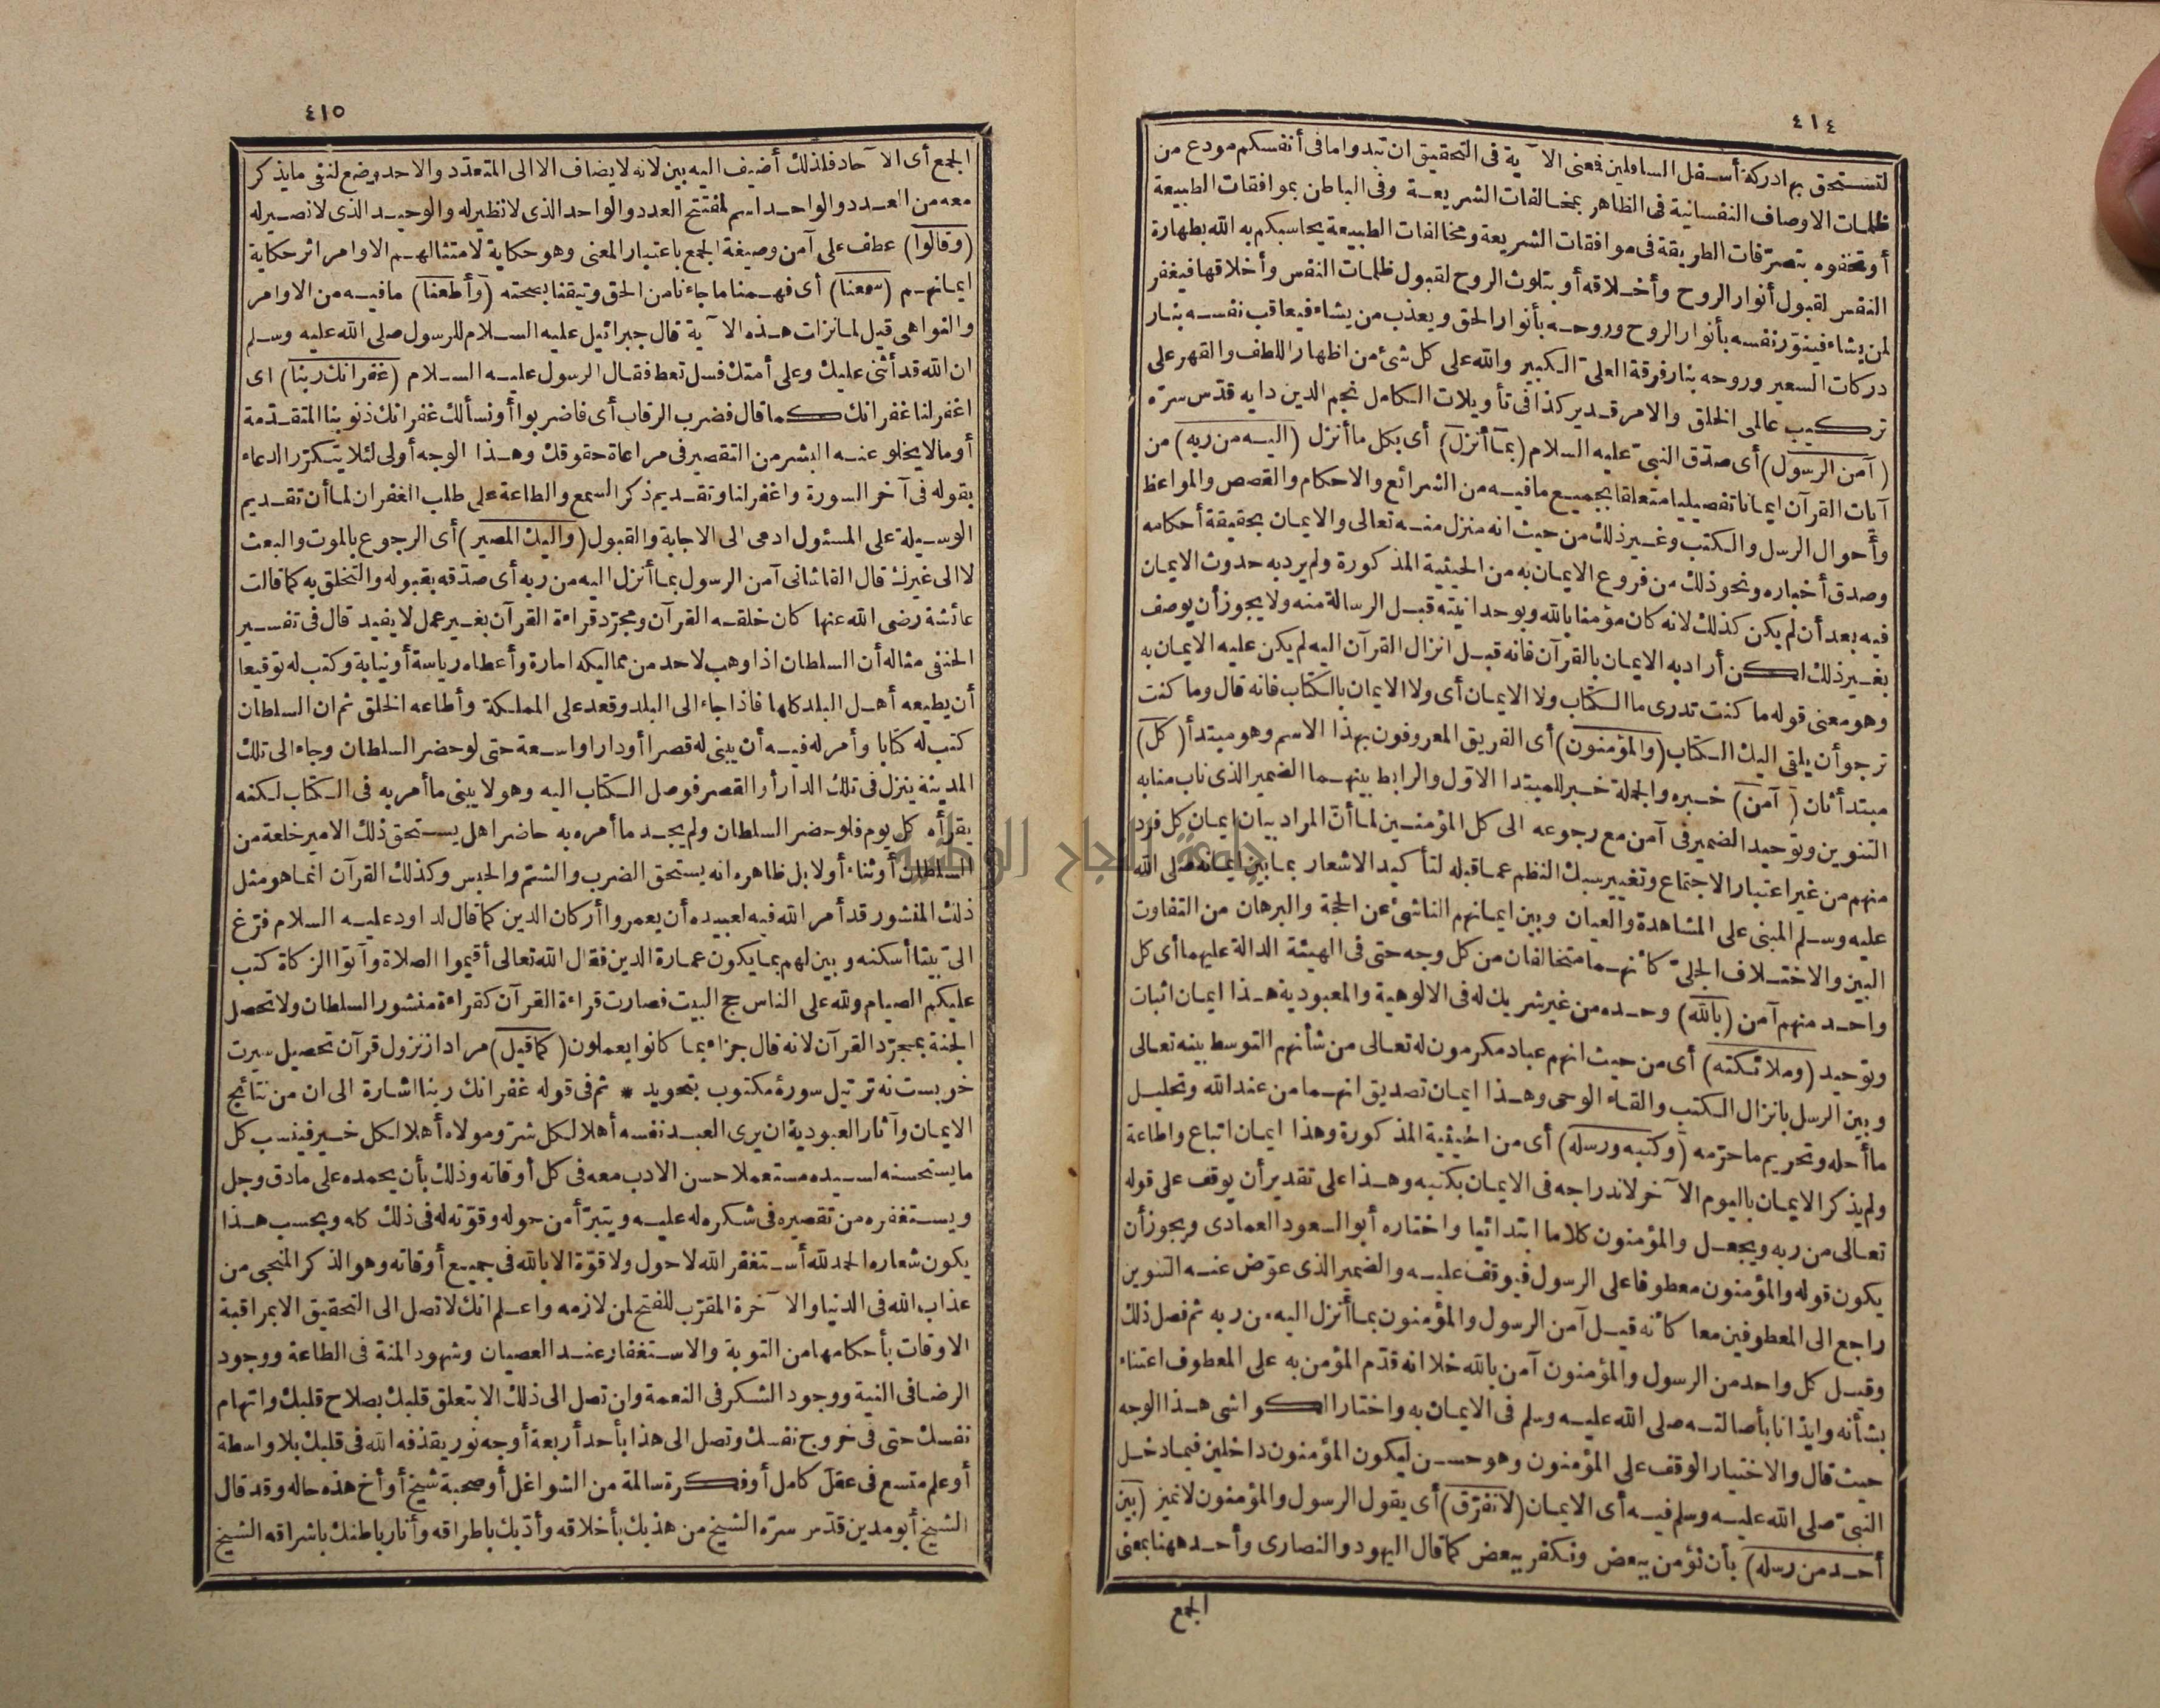 ٤١٤
لتستحق بها دركة أسفل السافلين فمعنى الآية فى التحقيق ان تبدوا ما فى أنفسكم مودع من
ظلمات الاوصاف النفسانية فى الظاهر بمخالفات الشريعة وفى الباطن بموافقات الطبيعة
أوتخفوه بتصرّفات الطريقة فى موافقات الشريعة ومخالفات الطبيعة يحاسبكم به الله بطهارة
النفس لقبول أنوار الروح وأخلاقه أو بتلوث الروح لقبول ظلمات النفس وأخلاقها فيغفر
لمن يشاء فينوّر نفسه بأنوار الروح وروحه بأنوار الحق ويعذب من يشاء فيعاقب نفسه بنار
دركات السعير وروحه بنار فرقة العلىّ الكبير والله على كل شئ من اظهار اللطف والقهر على
تركيب عالمى الخلق والامر قدير كذا فى تأويلات الكامل نجم الدين دايه قدّس سرّه
(آمن الرسول) أى صدّق النبىّ عليه السلام (بما أنزل) أى بكل ما أنزل (اليه من ربه) من
آيات القرآن ايمانا تفصيليا متعلقا بجميع ما فيه من الشرائع والاحكام والقصص والمواعظ
وأحوال الرسل والكتب وغير ذلك من حيث انه منزل منه تعالى والايمان بحقيقة أحكامه
وصدق أخباره ونحو ذلك من فروع الايمان به من الحيثية المذكورة ولم يرد به حدوث الايمان
فيه بعد أن لم يكن كذلك لانه كان مؤمنا بالله وبوحدانيته قبل الرسالة منه ولا يجوز أن يوصف
بغير ذلك لكن أراد به الايمان بالقرآن فانه قبل انزال القرآن اليه لم يكن عليه الايمان به
وهو معنى قوله ما كنت تدرى ما الكتاب ولا الايمان أى ولا الايمان بالكتاب فانه قال وما كنت
ترجو أن يلقى اليك الكتاب (والمؤمنون) أى الفريق المعروفون بهذا الاسم وهو مبتدأ (كل)
مبتدأ ثان (آمن) خبره والجملة خبر للمبتدا الاوّل والرابط بينهما الضمير الذى ناب منابه
التنوين وتوحيد الضمير فى آمن مع رجوعه الى كل المؤمنين لما أنّ المراد بيان ايمان كل فرد
منهم من غير اعتبار الاجتماع وتغيير سبك النظم عما قبله لتأكيد الاشعار بما بين ايمانه صلى الله
عليه وسلم المبنى على المشاهدة والعيان وبين ايمانهم الناشئ عن الحجة والبرهان من التفاوت
البين والاختلاف الجلىّ كأنهما متخالفان من كل وجه حتى فى الهيئة الدالة عليهما أى كل
واحد منهم آمن (بالله) وحده من غير شريك له فى الالوهية والمعبودية هذا ايمان اثبات
وتوحيد (وملائكته) أى من حيث انهم عباد مكرمون له تعالى من شأنهم التوسط بينه تعالى
وبين الرسل بانزال الكتب والقاء الوحى وهذا ايمان تصديق انهما من عند الله وتحليل
ما أحله وتحريم ما حرّمه (وكتبه ورسله) أى من الحيثية المذكورة وهذا ايمان اتباع واطاعة
ولم يذكر الايمان باليوم الآخر لاندراجه فى الايمان بكتبه وهذا على تقدير أن يوقف على قوله
تعالى من ربه ويجعل والمؤمنون كلاما ابتدائيا واختاره أبو السعود العمادى ويجوز أن
يكون قوله والمؤمنون معطوفا على الرسول فيوقف عليه والضمير الذى عوّض عنه التنوين
راجع الى المعطوفين معا كأنه قيل آمن الرسول والمؤمنون بما أنزل اليه من ربه ثم فصل ذلك
وقيل كل واحد من الرسول والمؤمنون آمن بالله خلا انه قدّم المؤمن به على المعطوف اعتناء
بشأنه وايذانا بأصالته صلى الله عليه وسلم فى الايمان به واختار الكواشى هذا الوجه
حيث قال والاختيار الوقف على المؤمنون وهو حسن ليكون المؤمنون داخلين فيما دخل
النبىّ صلى الله عليه وسلم فيه أى الايمان (لا نفرّق) أى يقول الرسول والمؤمنون لا نميز (بين
أحد من رسله) بأن نؤمن ببعض ونكفر ببعض كما قال اليهود والنصارى وأحد ههنا بمعنى
الجمع
٤١٥
الجمع أى الآحاد فلذلك أضيف اليه بين لانه لا يضاف الا الى المتعدّد والاحد وضع لنفى ما يذكر
معه من العدد والواحد اسم لمفتتح العدد والواحد الذى لا نظير له والوحيد الذى لا نصير له
(وقالوا) عطف على آمن وصيغة الجمع باعتبار المعنى وهو حكاية لامتثالهم الاوامر اثر حكاية
ايمانهم (سمعنا) أى فهمنا ما جاءنا من الحق وتيقنا بصحته (وأطعنا) ما فيه من الاوامر
والنواهى قيل لما نزلت هذه الآية قال جبرائيل عليه السلام للرسول صلى الله عليه وسلم
ان الله قد أثنى عليك وعلى أمتك فسل تعط فقال الرسول عليه السلام (غفرانك ربنا) اى
اغفر لنا غفرانك كما قال فضرب الرقاب أى فاضربوا أو نسألك غفرانك ذنوبنا المتقدّمة
أو ما لا يخلو عنه البشر من التقصير فى مراعاة حقوقك وهذا الوجه أولى لئلا يتكرّر الدعاء
بقوله فى آخر السورة واغفر لنا وتقديم ذكر السمع والطاعة على طلب الغفران لما أن تقديم
الوسيلة على المسئول ادعى الى الاجابة والقبول (واليك المصير) أى الرجوع بالموت والبعث
لا الى غيرك قال القاشانى آمن الرسول بما أنزل اليه من ربه أى صدّقه بقبوله والتخلق به كما قالت
عائشة رضى الله عنها كان خلقه القرآن ومجرّد قراءة القرآن بغير عمل لا يفيد قال فى تفسير
الحنفى مثاله أن السلطان اذا وهب لاحد من مماليكه امارة وأعطاه رياسة أو نيابة وكتب له توقيعا
أن يطيعه أهل البلد كلها فاذا جاء الى البلد وقعد على المملكة وأطاعه الخلق ثم ان السلطان
كتب له كتابا وأمر له فيه أن يبنى له قصرا أو دارا واسعة حتى لو حضر السلطان وجاء الى تلك
المدينة ينزل فى تلك الدار أو القصر فوصل الكتاب اليه وهو لا يبنى ما أمر به فى الكتاب لكنه
يقرأه كل يوم فلو حضر السلطان ولم يجد ما أمره به حاضرا هل يستحق ذلك الامير خلعة من
السلطان أو ثناء أو لا بل ظاهره انه يستحق الضرب والشتم والحبس وكذلك القرآن انما هو مثل
ذلك المنشور قد أمر الله فيه لعبيده أن يعمروا أركان الدين كما قال لداود عليه السلام فرّغ
الىّ بيتا أسكنه وبين لهم بما يكون عمارة الدين فقال الله تعالى أقيموا الصلاة وآتوا الزكاة كتب
عليكم الصيام ولله على الناس حج البيت فصارت قراءة القرآن كقراءة منشور السلطان ولا تحصل
الجنة بمجرّد القرآن لانه قال جزاء بما كانوا يعملون (كما قيل) مراد از نزول قرآن تحصيل سيرت
خوبست نه ترتيل سورهٔ مكتوب بتجويد * ثم فى قوله غفرانك ربنا اشارة الى ان من نتائج
الايمان وآثار العبودية ان يرى العبد نفسه أهلا لكل شرّ ومولاه أهلا لكل خير فينسب كل
ما يستحسنه لسيده مستعملا حسن الادب معه فى كل أوقاته وذلك بأن يحمده على ما دق وجل
ويستغفره من تقصيره فى شكره له عليه ويتبرّأ من حوله وقوّته له فى ذلك كله وبحسب هذا
يكون شعاره الحمد لله أستغفر الله لا حول ولا قوّة الا بالله فى جميع أوقاته وهو الذكر المنجى من
عذاب الله فى الدنيا والآخرة المقرّب للفتح لمن لازمه واعلم انك لا تصل الى التحقيق الا بمراقبة
الاوقات بأحكامها من التوبة والاستغفار عند العصيان وشهود المنة فى الطاعة ووجود
الرضا فى النية ووجود الشكر فى النعمة وان تصل الى ذلك الا بتعلق قلبك بصلاح قلبك واتهام
نفسك حتى فى خروج نفسك وتصل الى هذا بأحد أربعة أوجه نور يقذفه الله فى قلبك بلا واسطة
أو علم متسع فى عقل كامل أو فكرة سالمة من الشواغل أو صحبة شيخ أو أخ هذه حاله وقد قال
الشيخ أبو مدين قدّس سرّه الشيخ من هذبك بأخلاقه وأدّبك باطراقه وأنار باطنك باشراقه الشيخ
جامعة النجاح الوطنية